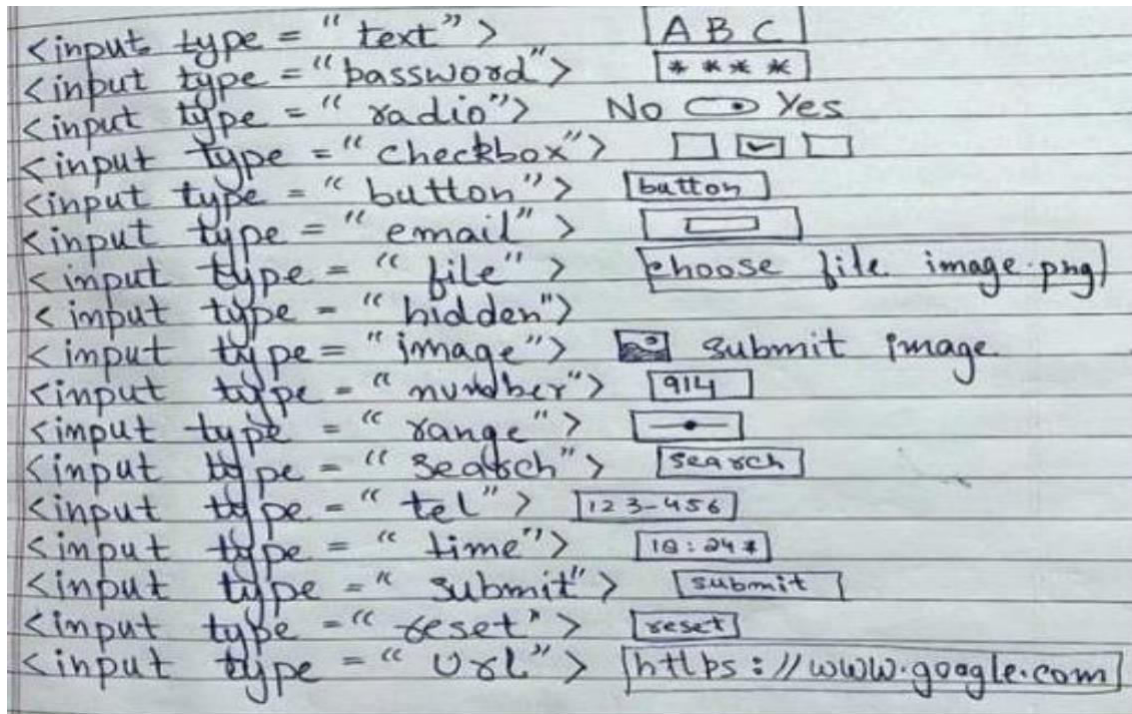 <input type = "text"> A B C
<input type = "password"> * * * *
<input type = "radio"> No Yes
<input type = "checkbox">
<input type = "button"> button
<input type = "email">
<input type = "file"> choose file image.png
<input type = "hidden">
<input type = "image"> submit image
<input type = "number"> 914
<input type = "range">
<input type = "search"> search
<input type = "tel"> 123-456
<input type = "time"> 10:24 *
<input type = "submit"> submit
<input type = "reset"> reset
<input type = "Url"> https://www.google.com